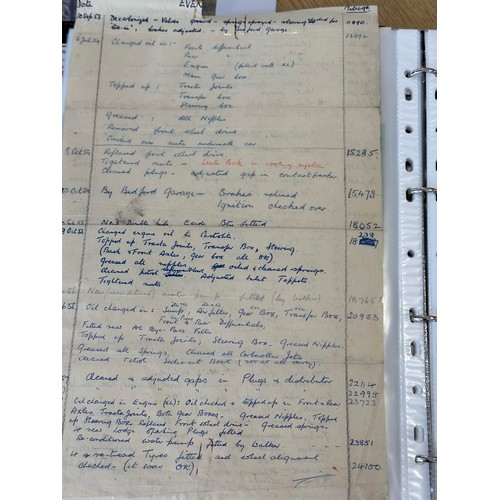 Date EVEN
10 Sep 53 Decarbonized - Valves ground - springs sprayed - steering checked for
brakes adjusted - by Bedford Garage 11890.
Changed oil in :- Front differential 13492
Rear "
Engine
Main Gear box
Topped up ; Tracta Joints
Transfer box
Steering box
Greased ; All Nipples
Removed front wheel drive
Checked car nuts underneath car
5 Oct 54 Replaced front wheel drive. 15285.
Tightened nuts - Water leak in cooling system
Cleaned plugs - adjusted gap in contact breaker
By Bedford Garage - Brakes relined 15478
Ignition checked over
No.3 Exide Btrs fitted 18052
Changed engine oil to Castrolite. 239
Topped up Tracta Joints, Transfer Box, Steering 18
(Back & Front Axles, Gear box all OK)
Greased all nipples oiled & cleaned springs.
Cleaned petrol Adjusted Inlet Tappets
Tightened nuts.
water pump fitted (by Walker) 18765
Oil changed in Sump, Air filter, Gear Box, Transfer Box, 20953
Front & Rear Differentials,
Fitted new AC Bye-Pass Filter
Topped up Tracta Joints, Steering Box - Greased Nipples.
Greased all Springs, Cleaned all Carburettor Jets
Cleaned Petrol Sediment Bowl (not at all dirty)
Cleaned & adjusted gaps in Plugs & distributor 22114
" " " " " 22995
Oil changed in Engine (XL): Oil checked & topped up in Front & Rear 23723
Axles, Tracta Joints, Both Gear Boxes. - Greased Nipples, Topped
up Steering Box. Replaced Front wheel drive - Greased springs.
4 new Lodge Plugs fitted
Re-conditioned water pump fitted by Walker 23851
4 re-tread Tyres fitted and wheel alignment
checked - (it was OK) 24100